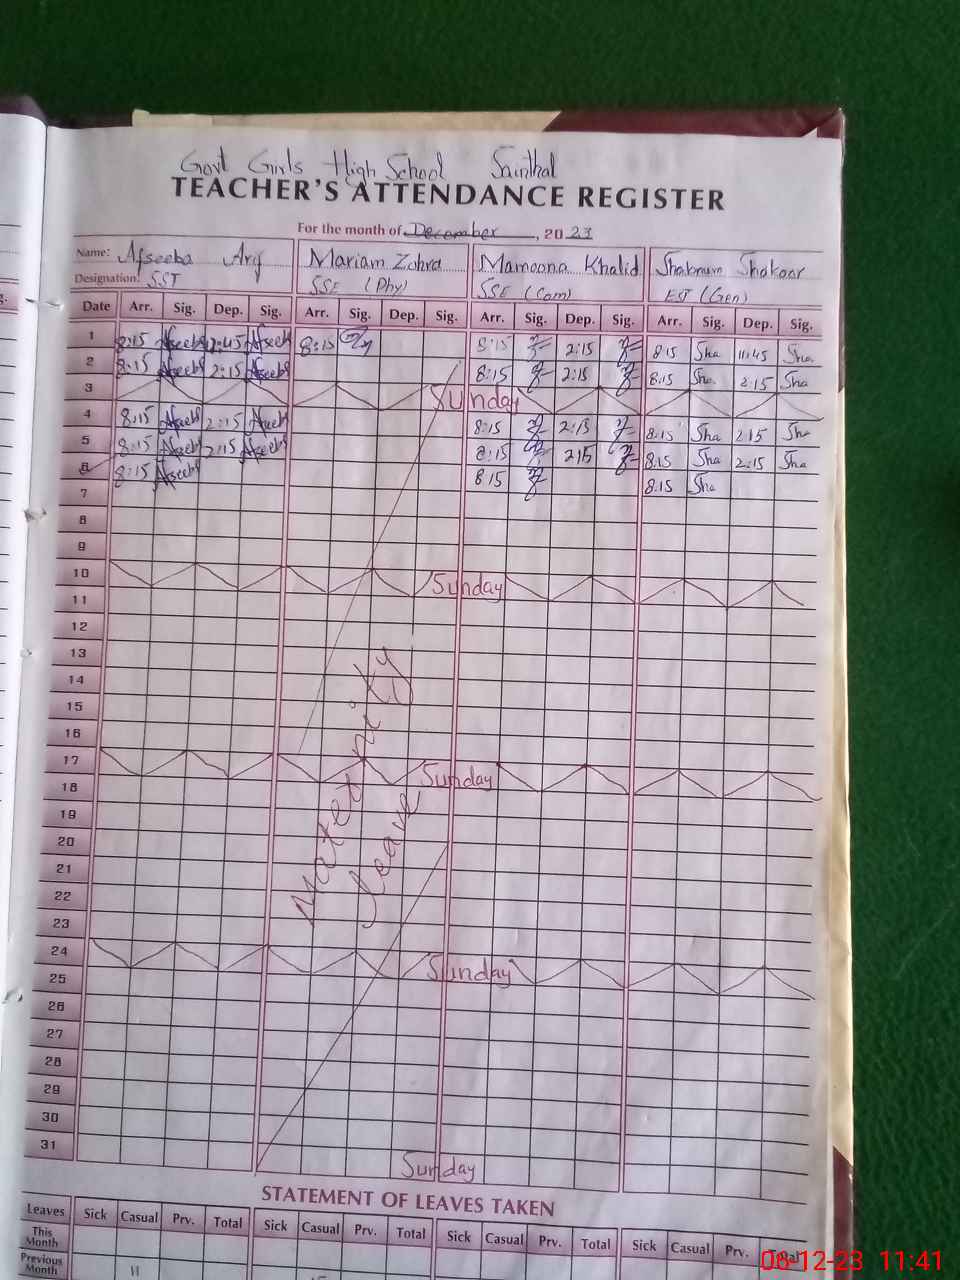 Govt Girls High School Sainthal
TEACHER'S ATTENDANCE REGISTER
For the month of December, 2023
Name: Afseeba Arif Mariam Zahra Mamoona Khalid Shabnum Shakoor
Designation: SST SSE (Phy) SSE (Com) EST (Gen)
Date Arr. Sig. Dep. Sig. Arr. Sig. Dep. Sig. Arr. Sig. Dep. Sig. Arr. Sig. Dep. Sig.
1 8:15 Afseeb 2:45 Afseeb 8:15 8:15 2:15 8:15 Sha 11:45 Sha
2 8:15 Afseeb 2:15 Afseeb 8:15 2:15 8:15 Sha 2:15 Sha
3 Sunday
4 8:15 Afseeb 2:15 Afseeb 8:15 2:15 8:15 Sha 2:15 Sha
5 8:15 Afseeb 2:15 Afseeb 8:15 2:15 8:15 Sha 2:15 Sha
6 8:15 Afseeb 8:15 8:15 Sha
7
8
9
10 Sunday
11
12
13
14
15
16
17 Sunday
18
19
20
21
22
23
24 Sunday
25
26
27
28
29
30
31 Sunday
Maternity
leave
STATEMENT OF LEAVES TAKEN
Leaves Sick Casual Prv. Total Sick Casual Prv. Total Sick Casual Prv. Total Sick Casual Prv. Total
This Month
Previous Month 11
08-12-23 11:41